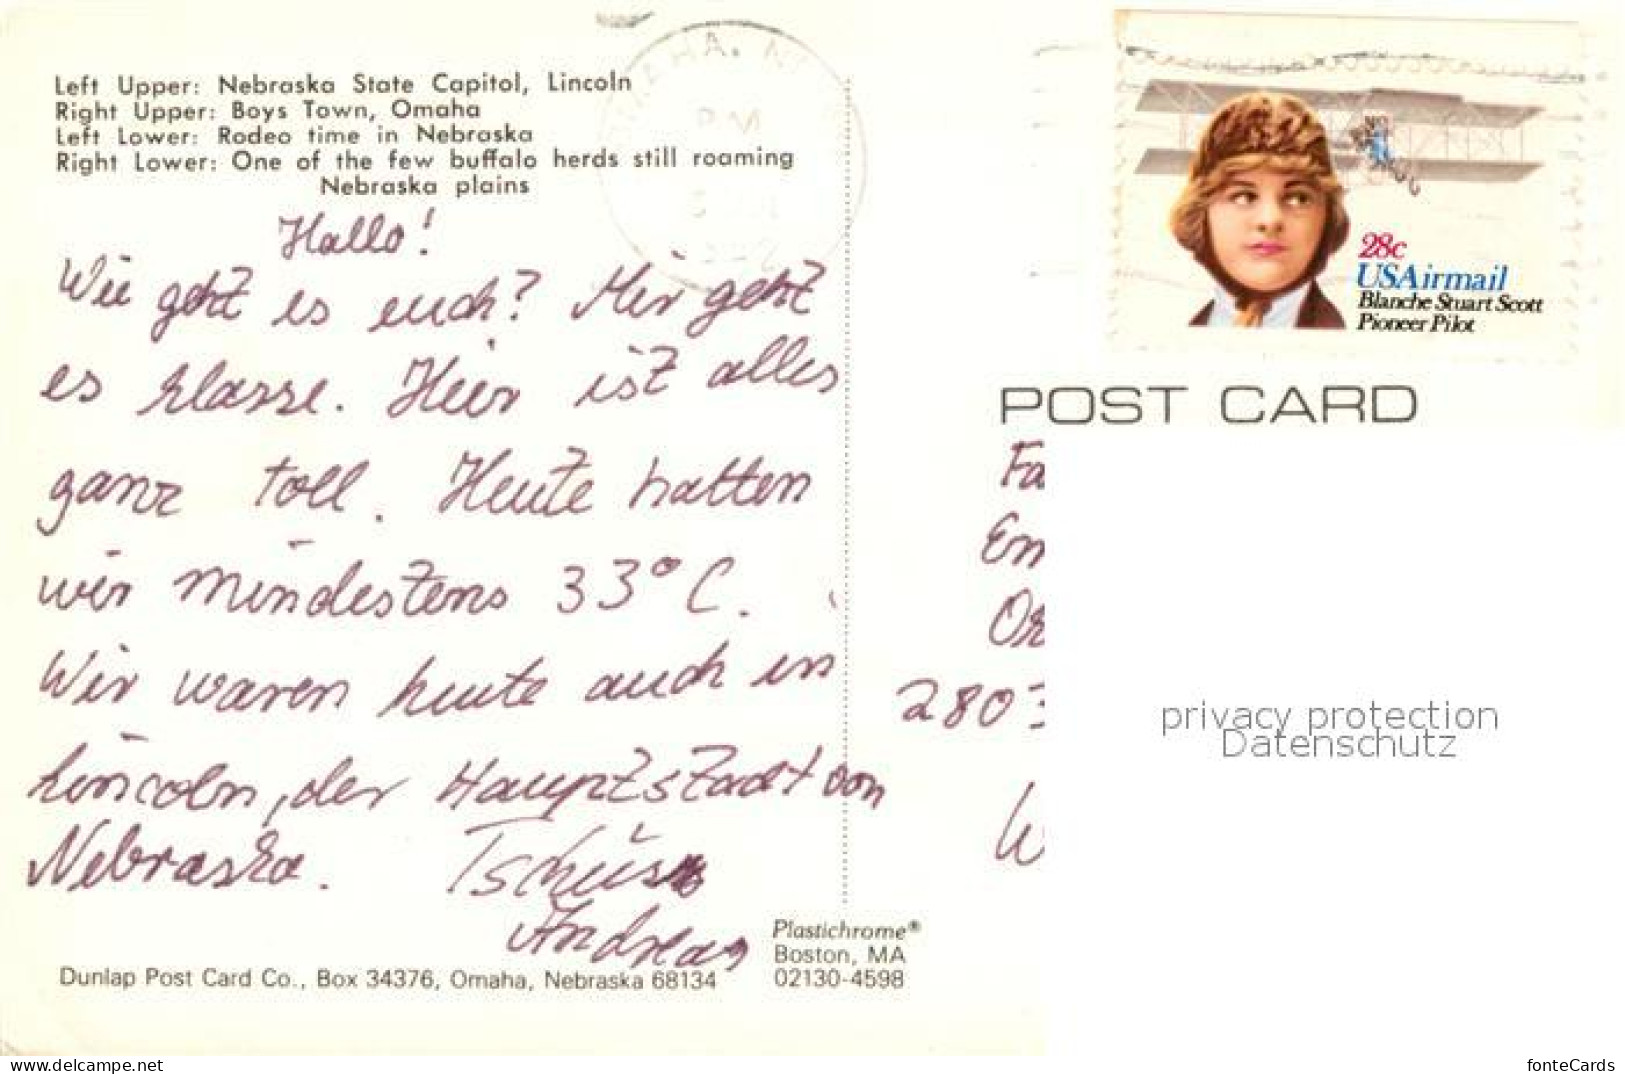 Left Upper: Nebraska State Capitol, Lincoln
Right Upper: Boys Town, Omaha
Left Lower: Rodeo time in Nebraska
Right Lower: One of the few buffalo herds still roaming
Nebraska plains
Hallo!
Wie geht es euch? Mir geht
es klasse. Hier ist alles
ganz toll. Heute hatten
wir mindestens 33° C.
Wir waren heute auch in
Lincoln, der Hauptstadt von
Nebraska. Tschüss
Andreas
Dunlap Post Card Co., Box 34376, Omaha, Nebraska 68134
Plastichrome®
Boston, MA
02130-4598
28c
USAirmail
Blanche Stuart Scott
Pioneer Pilot
POST CARD
Fa
Em
2803
W
privacy protection
Datenschutz
delcampe.net
fonteCards